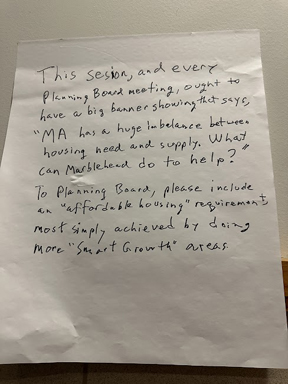 This sesion, and every
Planning Board meeting, ought to
have a big banner showing that says,
"MA has a huge imbelance between
housing need and supply. What
can Marblehead do to help?"
To Planning Board, please include
an "affordable housing" requirement,
most simply achieved by doing
more "Smart Growth" areas.